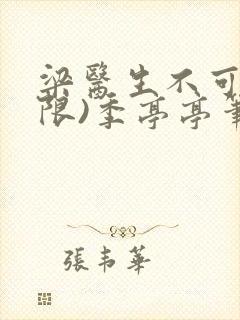 梁医生不可
限)季亭亭笔
張韦華